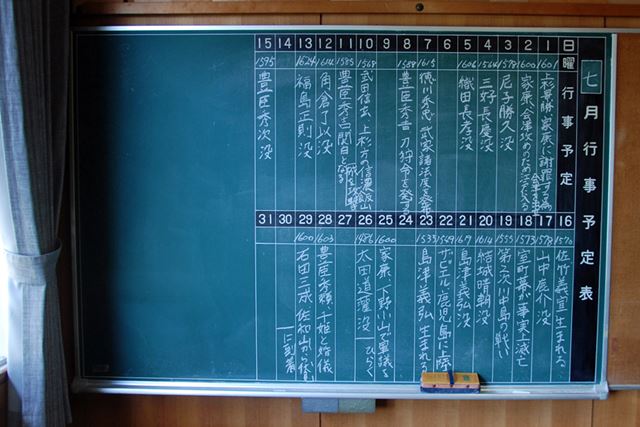 七月行事予定表
日 曜 行事予定
1 1601 上杉景勝 家康に謝罪する為 会津を出立
2 1600 家康、会津攻めのため江戸に入る
3 1578 尼子勝久 没
4 1564 三好長慶 没
5 1606 織田長孝 没
6
7 1615 徳川秀忠 武家諸法度を発布
8 1588 豊臣秀吉 刀狩令を発す
9
10 1568 武田信玄 上杉方の信濃飯山
11 1585 豊臣秀吉 関白となる
12 1614 角倉了以 没
13 1624 福島正則 没
14
15 1595 豊臣秀次 没
16 1570 佐竹義宣 生まれる
17 1578 山中鹿介 没
18 1573 室町幕府 事実上滅亡
19 1555 第2次川中島の戦い
20 1614 結城晴朝 没
21 1617 島津義弘 没
22 1549 ザビエル、鹿児島に上陸
23 1535 島津義弘 生まれる
24
25 1600 家康、下野小山で軍議を ひらく
26 1486 太田道灌 没
27
28 1603 豊臣秀頼 千姫と婚儀
29 1600 石田三成 佐和山から に到着
30
31